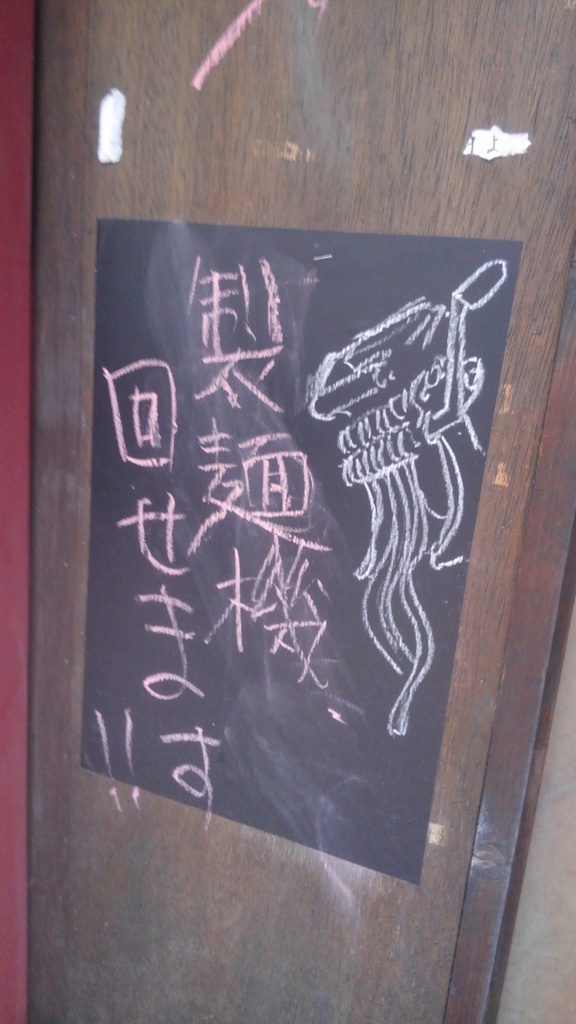 製麺機
回せます!!